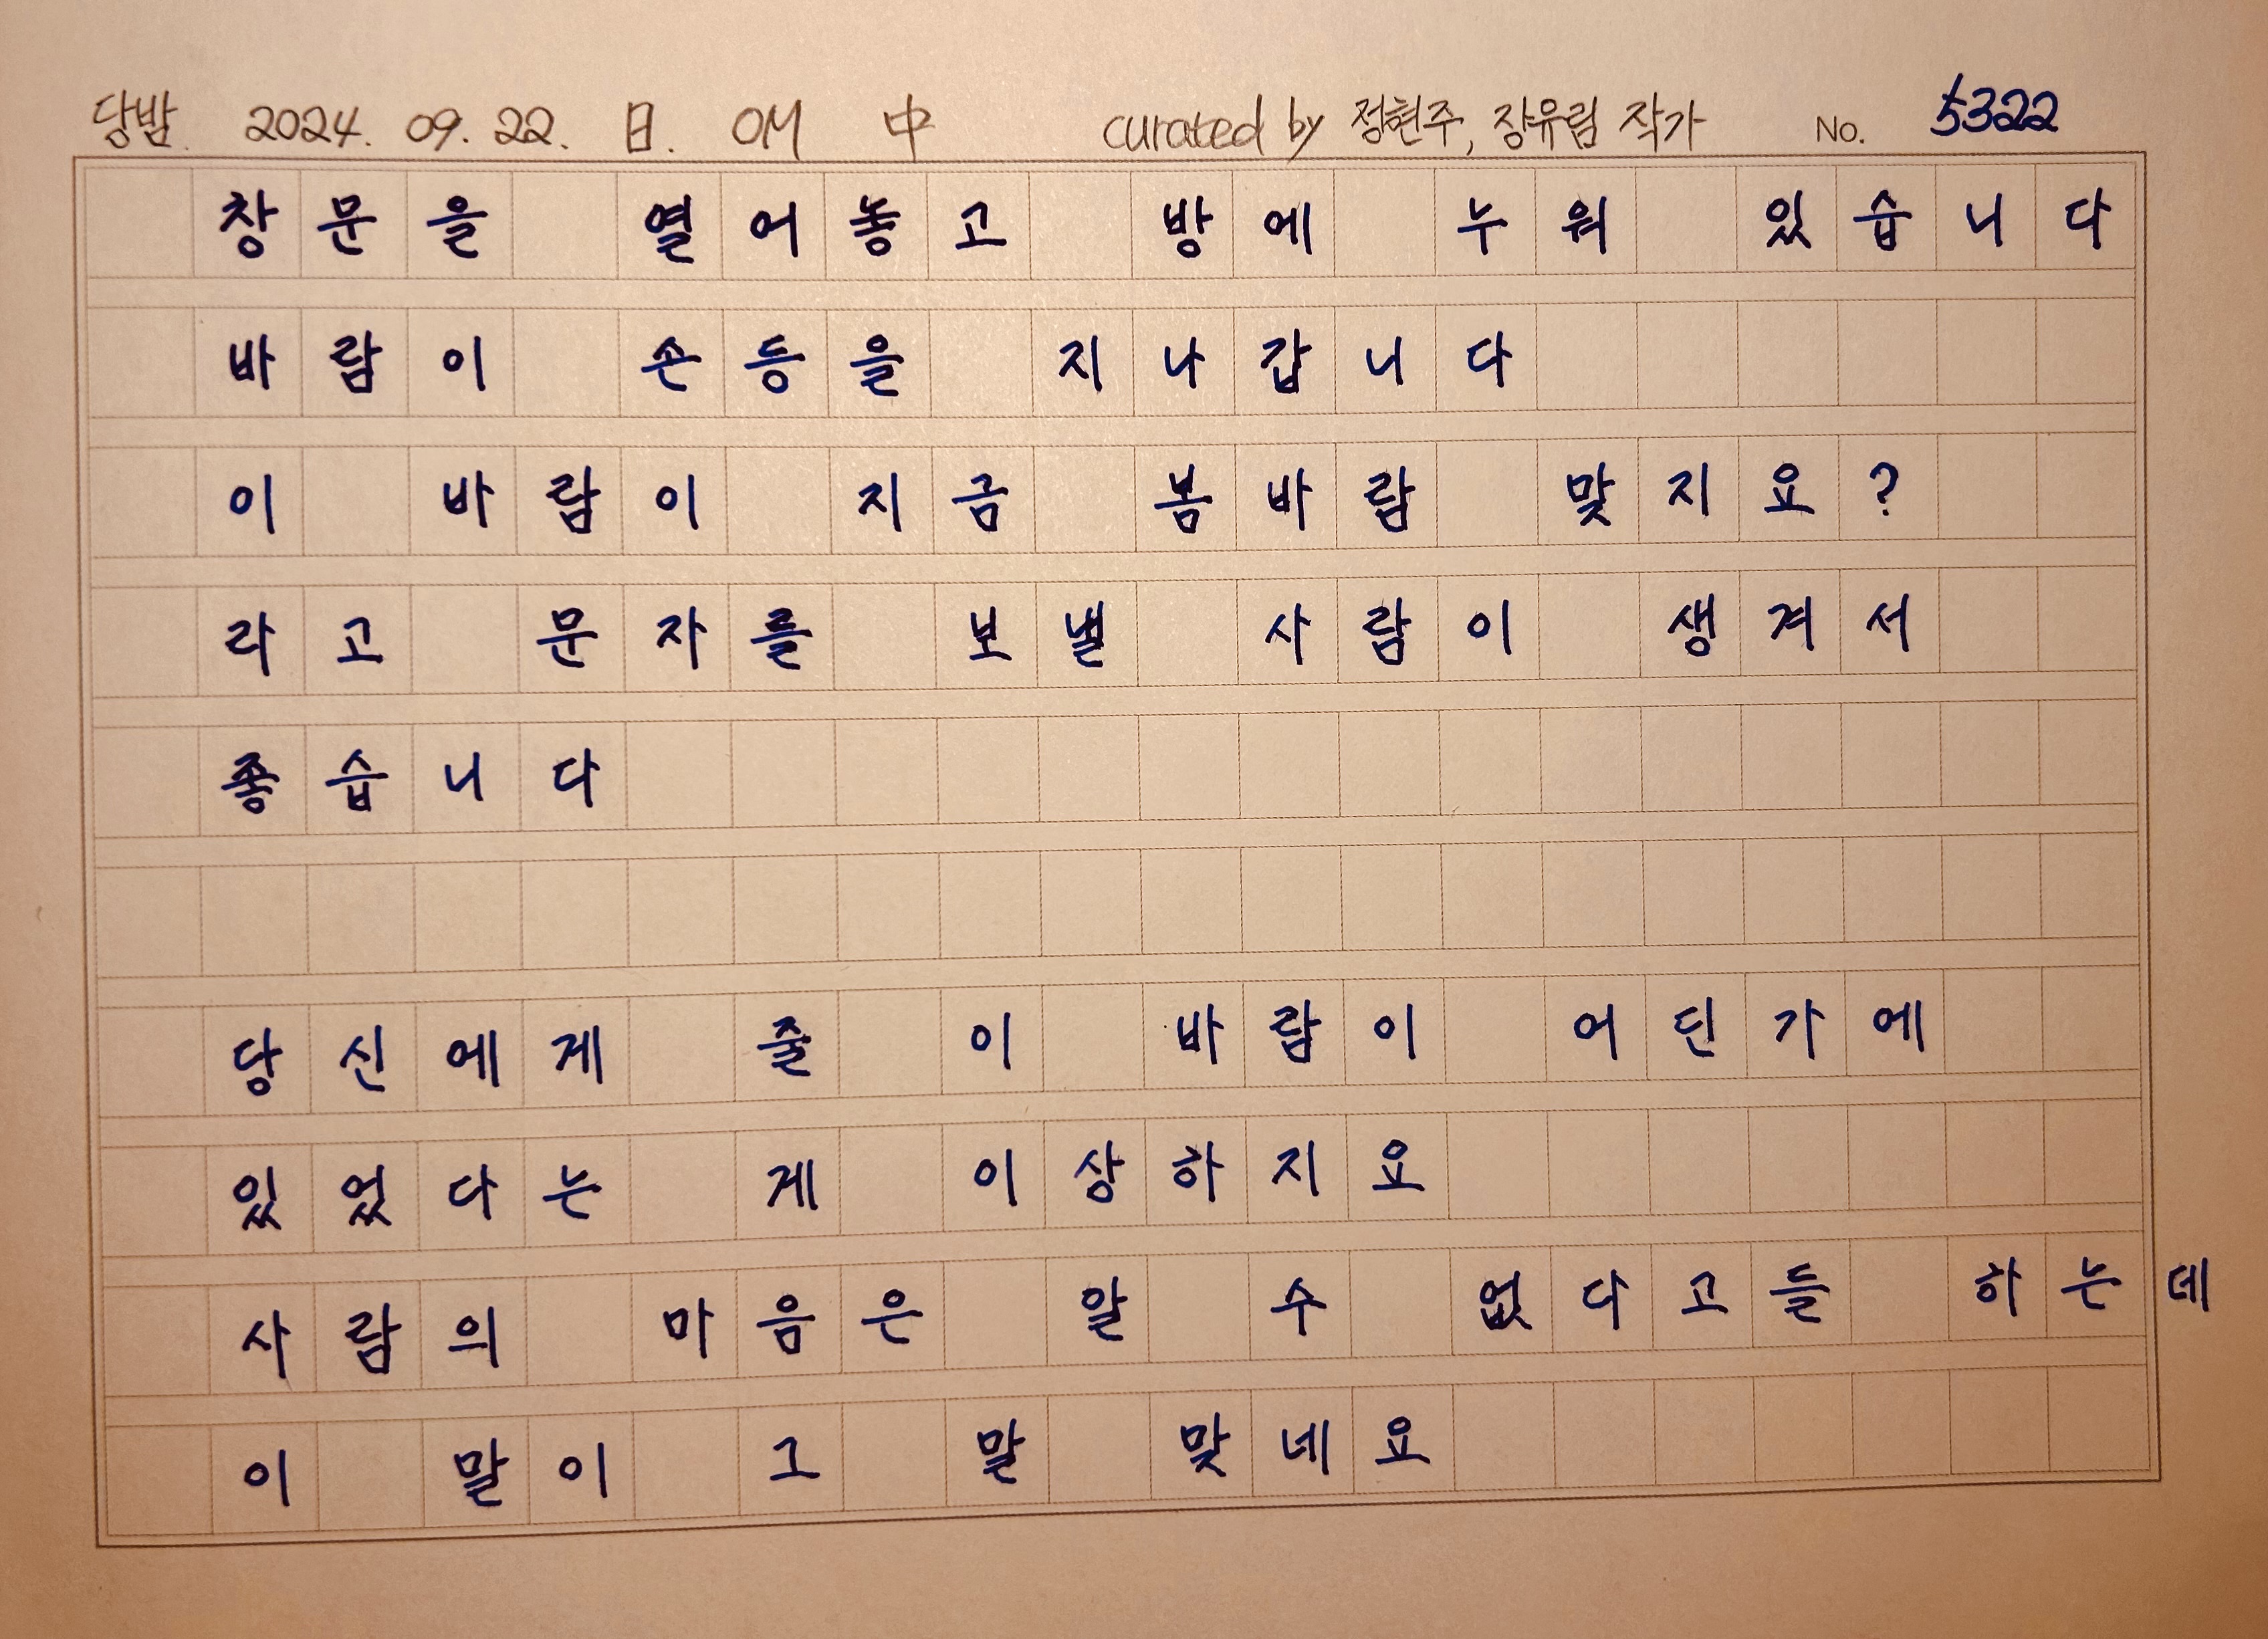 당밤. 2024. 09. 22. 日. OM 中 curated by 정현주, 장유림 작가 No. 5322
창문을 열어놓고 방에 누워 있습니다
바람이 손등을 지나갑니다
이 바람이 지금 봄바람 맞지요?
라고 문자를 보낼 사람이 생겨서
좋습니다
당신에게 줄 이 바람이 어딘가에
있었다는 게 이상하지요
사람의 마음은 알 수 없다고들 하는데
이 말이 그 말 맞네요